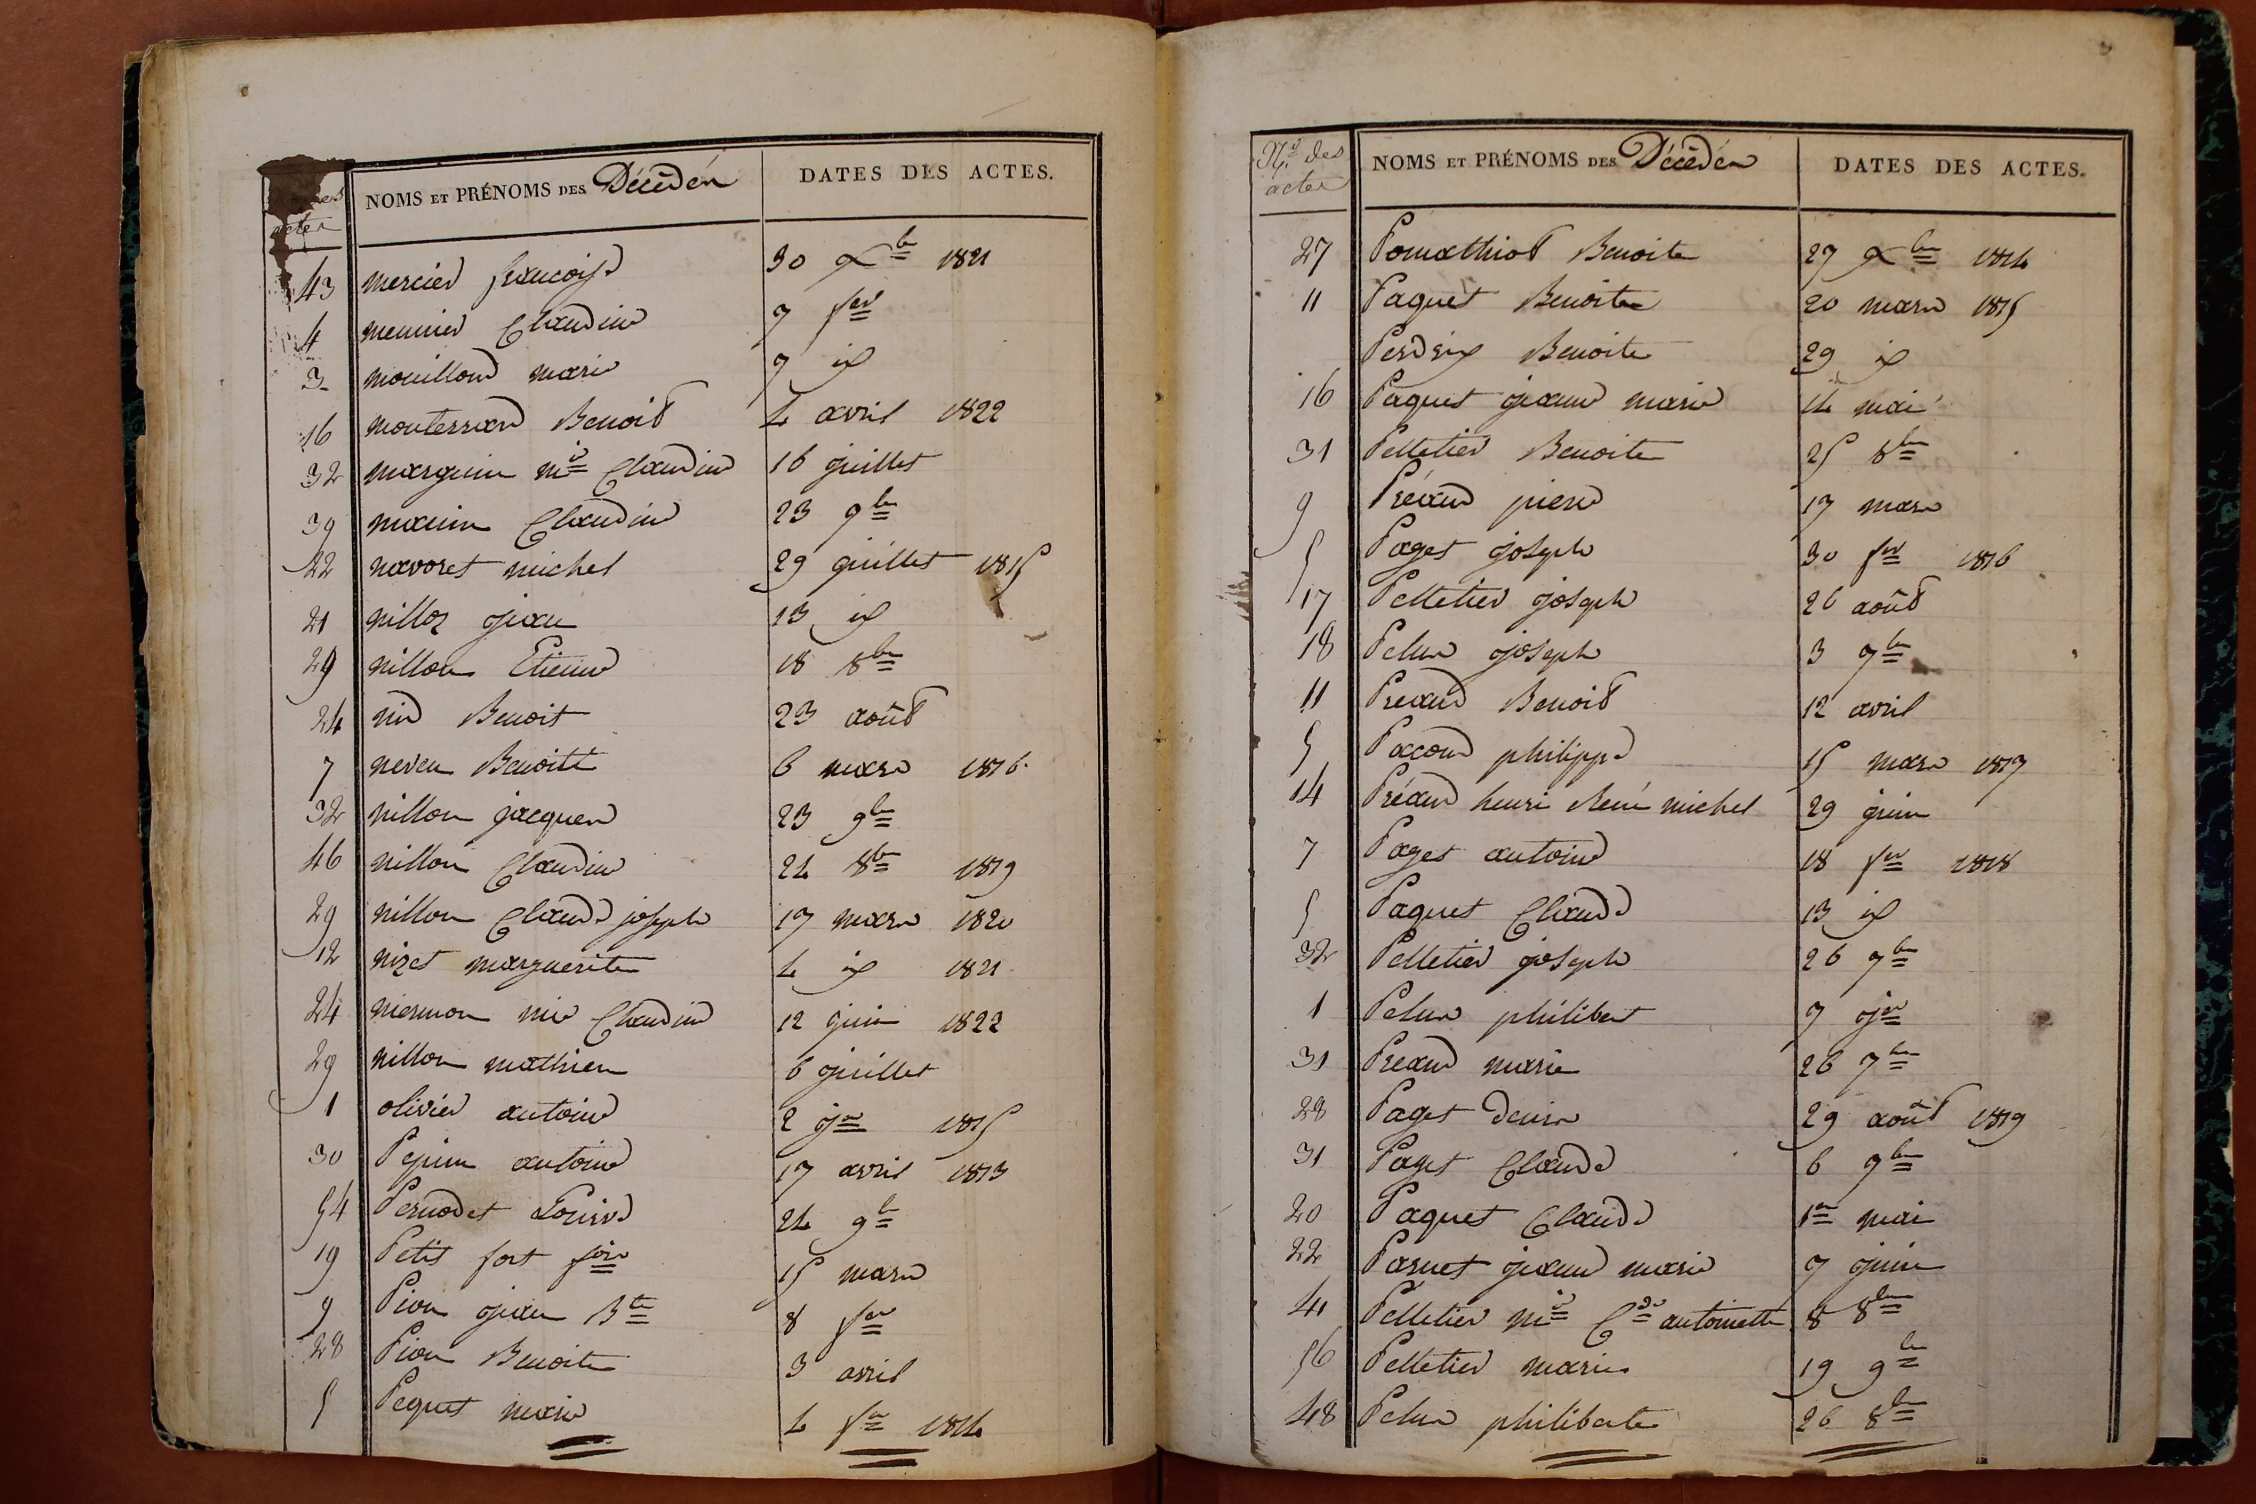 actes
NOMS ET PRÉNOMS DES Décédés
DATES DES ACTES.
43 mercier françoise 30 Xbre 1821
4 meunier Claudine 7 fer
3 mouillond marie 9 id
16 monterrand Benoit 4 avril 1822
32 marguin mie Claudine 16 juillet
39 manin Claudine 23 9bre
22 navoret michel 29 juillet 1815
21 nilloz jean 13 id
29 nillon Etienne 18 8bre
24 nid Benoit 23 août
7 neveu Benoite 6 mars 1816
32 nillon jacques 23 9bre
46 nillon Claudine 24 8bre 1819
29 nillon Claude joseph 17 mars 1820
12 nizet marguerite 4 id 1821
24 niermon mie Claudine 12 juin 1822
29 nillon mathieu 6 juillet
1 olivier antoine 2 jer 1815
30 Pepin antoine 17 avril 1813
54 Pernodet Louise 24 9bre
19 Petit fort foise 15 mars
9 Pion jean Bte 8 fer
28 Pion Benoite 3 avril
5 Pequet marie 4 fer 1814
Nos des actes
NOMS ET PRÉNOMS DES Décédés
DATES DES ACTES.
27 Pomathiot Benoite 27 Xbre 1814
11 Paquet Benoite 20 mars 1815
Perdrix Benoite 29 id
16 Paquet jeanne marie 14 mai
31 Pelletier Benoite 25 8bre
9 Préaud pierre 17 mars
5 Paget joseph 30 fer 1816
17 Pelletier joseph 26 août
18 Pelus joseph 3 7bre
11 Preaud Benoit 12 avril
5 Paccoud philippe 15 mars 1817
14 Préaud henri René michel 29 juin
7 Paget antoine 18 fer 1818
5 Paquet Claude 13 id
32 Pelletier joseph 26 7bre
1 Pelus philibert 7 jer
31 Preaud marie 26 7bre
28 Paget denis 29 août 1819
31 Paget Claude 6 7bre
20 Paquet Claude 1er mai
22 Parnet jeanne marie 7 juin
41 Pelletier mie Cde antoinette 8 8bre
56 Pelletier marie 19 9bre
48 Pelus philiberte 26 8bre